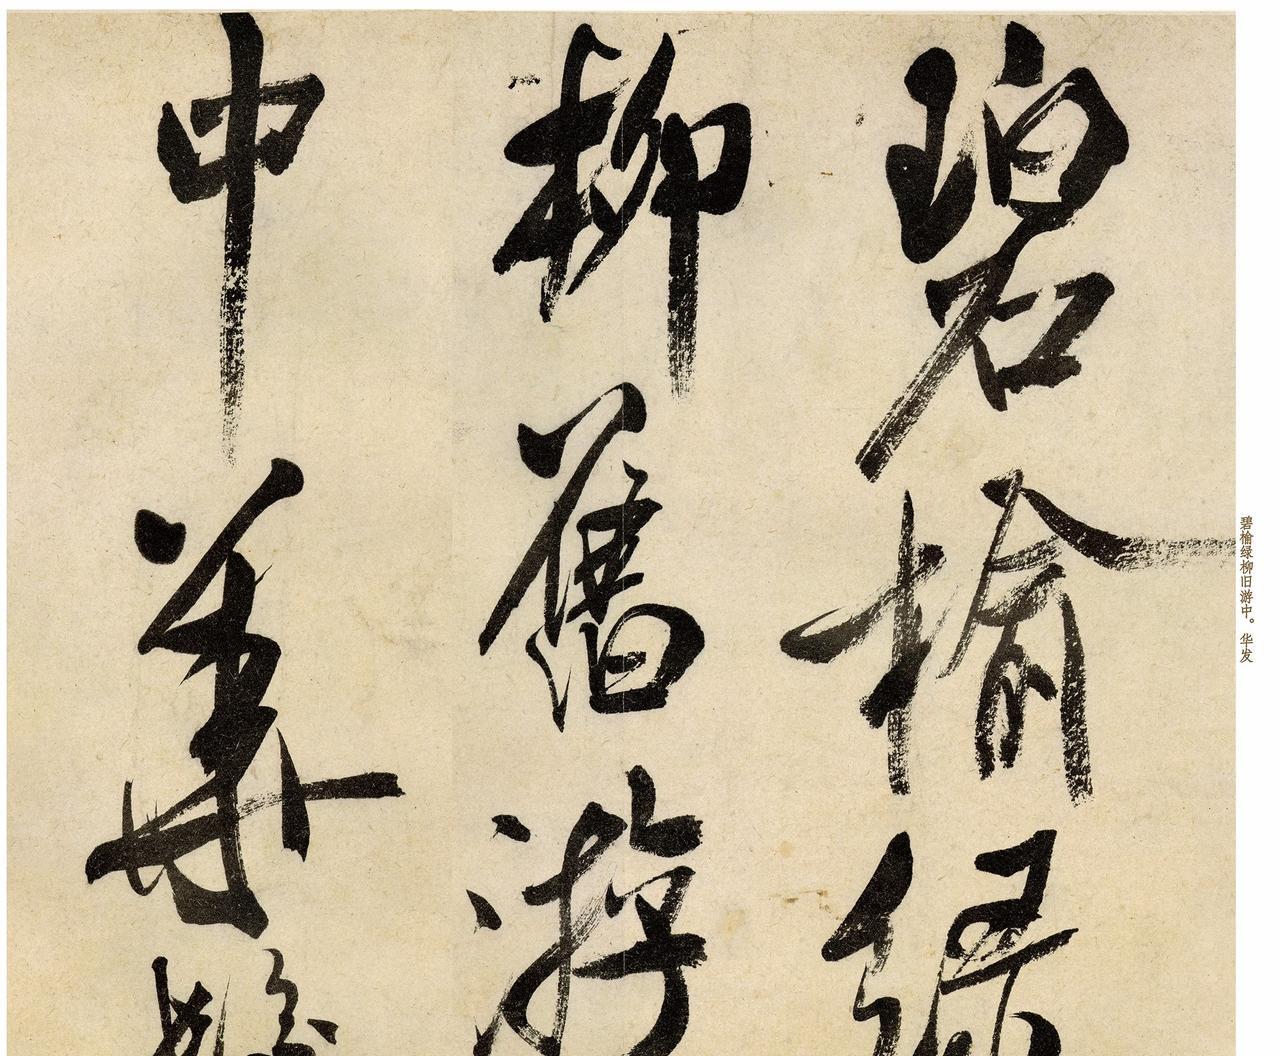 碧榆綠
柳舊游
中華髮
碧榆绿柳旧游中。华发